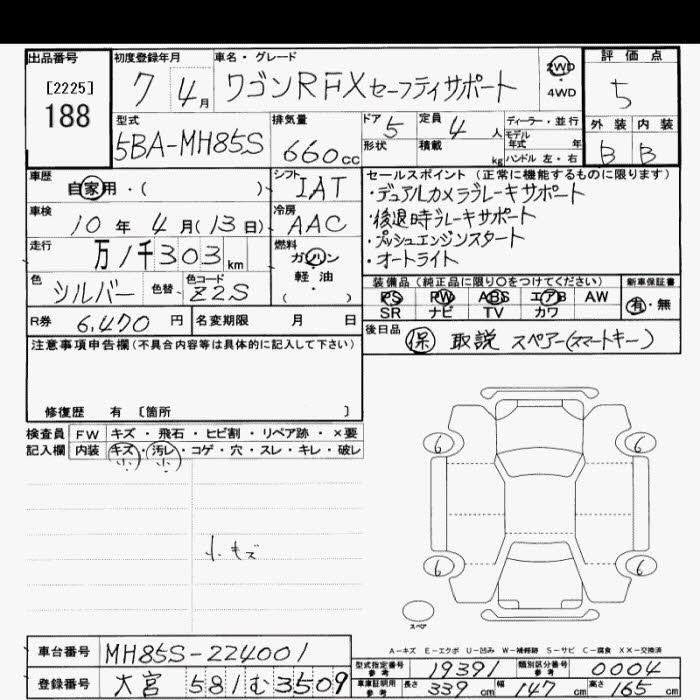 出品番号 初度登録年月 車名・グレード 評価点
[2225]
188
7 4月 ワゴンR FX セーフティサポート 2WD・4WD 5
型式 排気量 ドア 5 定員 4人 ディーラー・並行 外装 内装
5BA-MH85S 660cc 形状 積載 kg モデル年式 年 B B
ハンドル 左・右
車歴 自家用・( ) シフト IAT セールスポイント (正常に機能するものに限ります)
・デュアルカメラブレーキサポート
車検 10年 4月(13日) 冷房 AAC ・後退時ブレーキサポート
・プッシュエンジンスタート
走行 万1千303km 燃料 ガソリン・軽油・( ) ・オートライト
色 シルバー 色替 色コード Z2S 装備品 (純正品に限り○をつけてください) 新車保証書
PS PW ABS エアB AW 有・無
SR ナビ TV カワ
R券 6,470円 名変期限 月 日 後日品 保 取説 スペアー(スマートキー)
注意事項申告欄 (不具合内容等は具体的に記入して下さい)
修復歴 有 [箇所 ]
検査員 FW キズ・飛石・ヒビ割・リペア跡・×要
記入欄 内装 キズ・汚レ・コゲ・穴・スレ・キレ・破レ
小 小
6 6
小キズ
6 6
スペア
A-キズ E-エクボ U-凹み W-補修跡 S-サビ C-腐食 XX-交換済
車台番号 MH85S-224001 型式指定番号 参考 19391 類別区分番号 参考 0004
登録番号 大宮 581 む 3509 車庫証明用 参考 長さ 339cm 幅 147cm 高さ 165cm